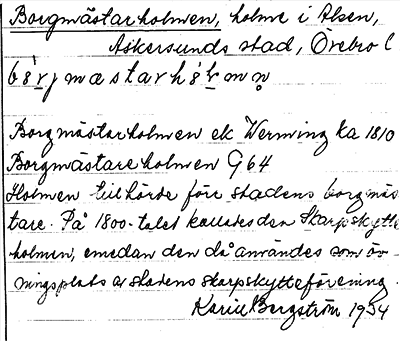 Borgmästarholmen, holme i Alsen,
Askersunds stad, Örebro l
Borgmästarholmen ek Werming ka 1810
Borgmästareholmen G64
Holmen tillhörde förr stadens borgmäs
tare. På 1800-talet kallades den Skarpskytte
holmen, emedan den då användes som öv-
ningsplats av stadens skarpskytteförening.
Karin Bergström 1934